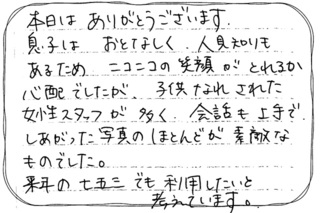 本日は ありがとうございます.
息子は おとなしく、人見知りも
あるため ニコニコの笑顔がとれるか
心配でしたが、子供なれされた
女性スタッフが多く、会話も上手で
しあがった写真のほとんどが素敵な
ものでした。
来年の七五三でも利用したいと
考えています。